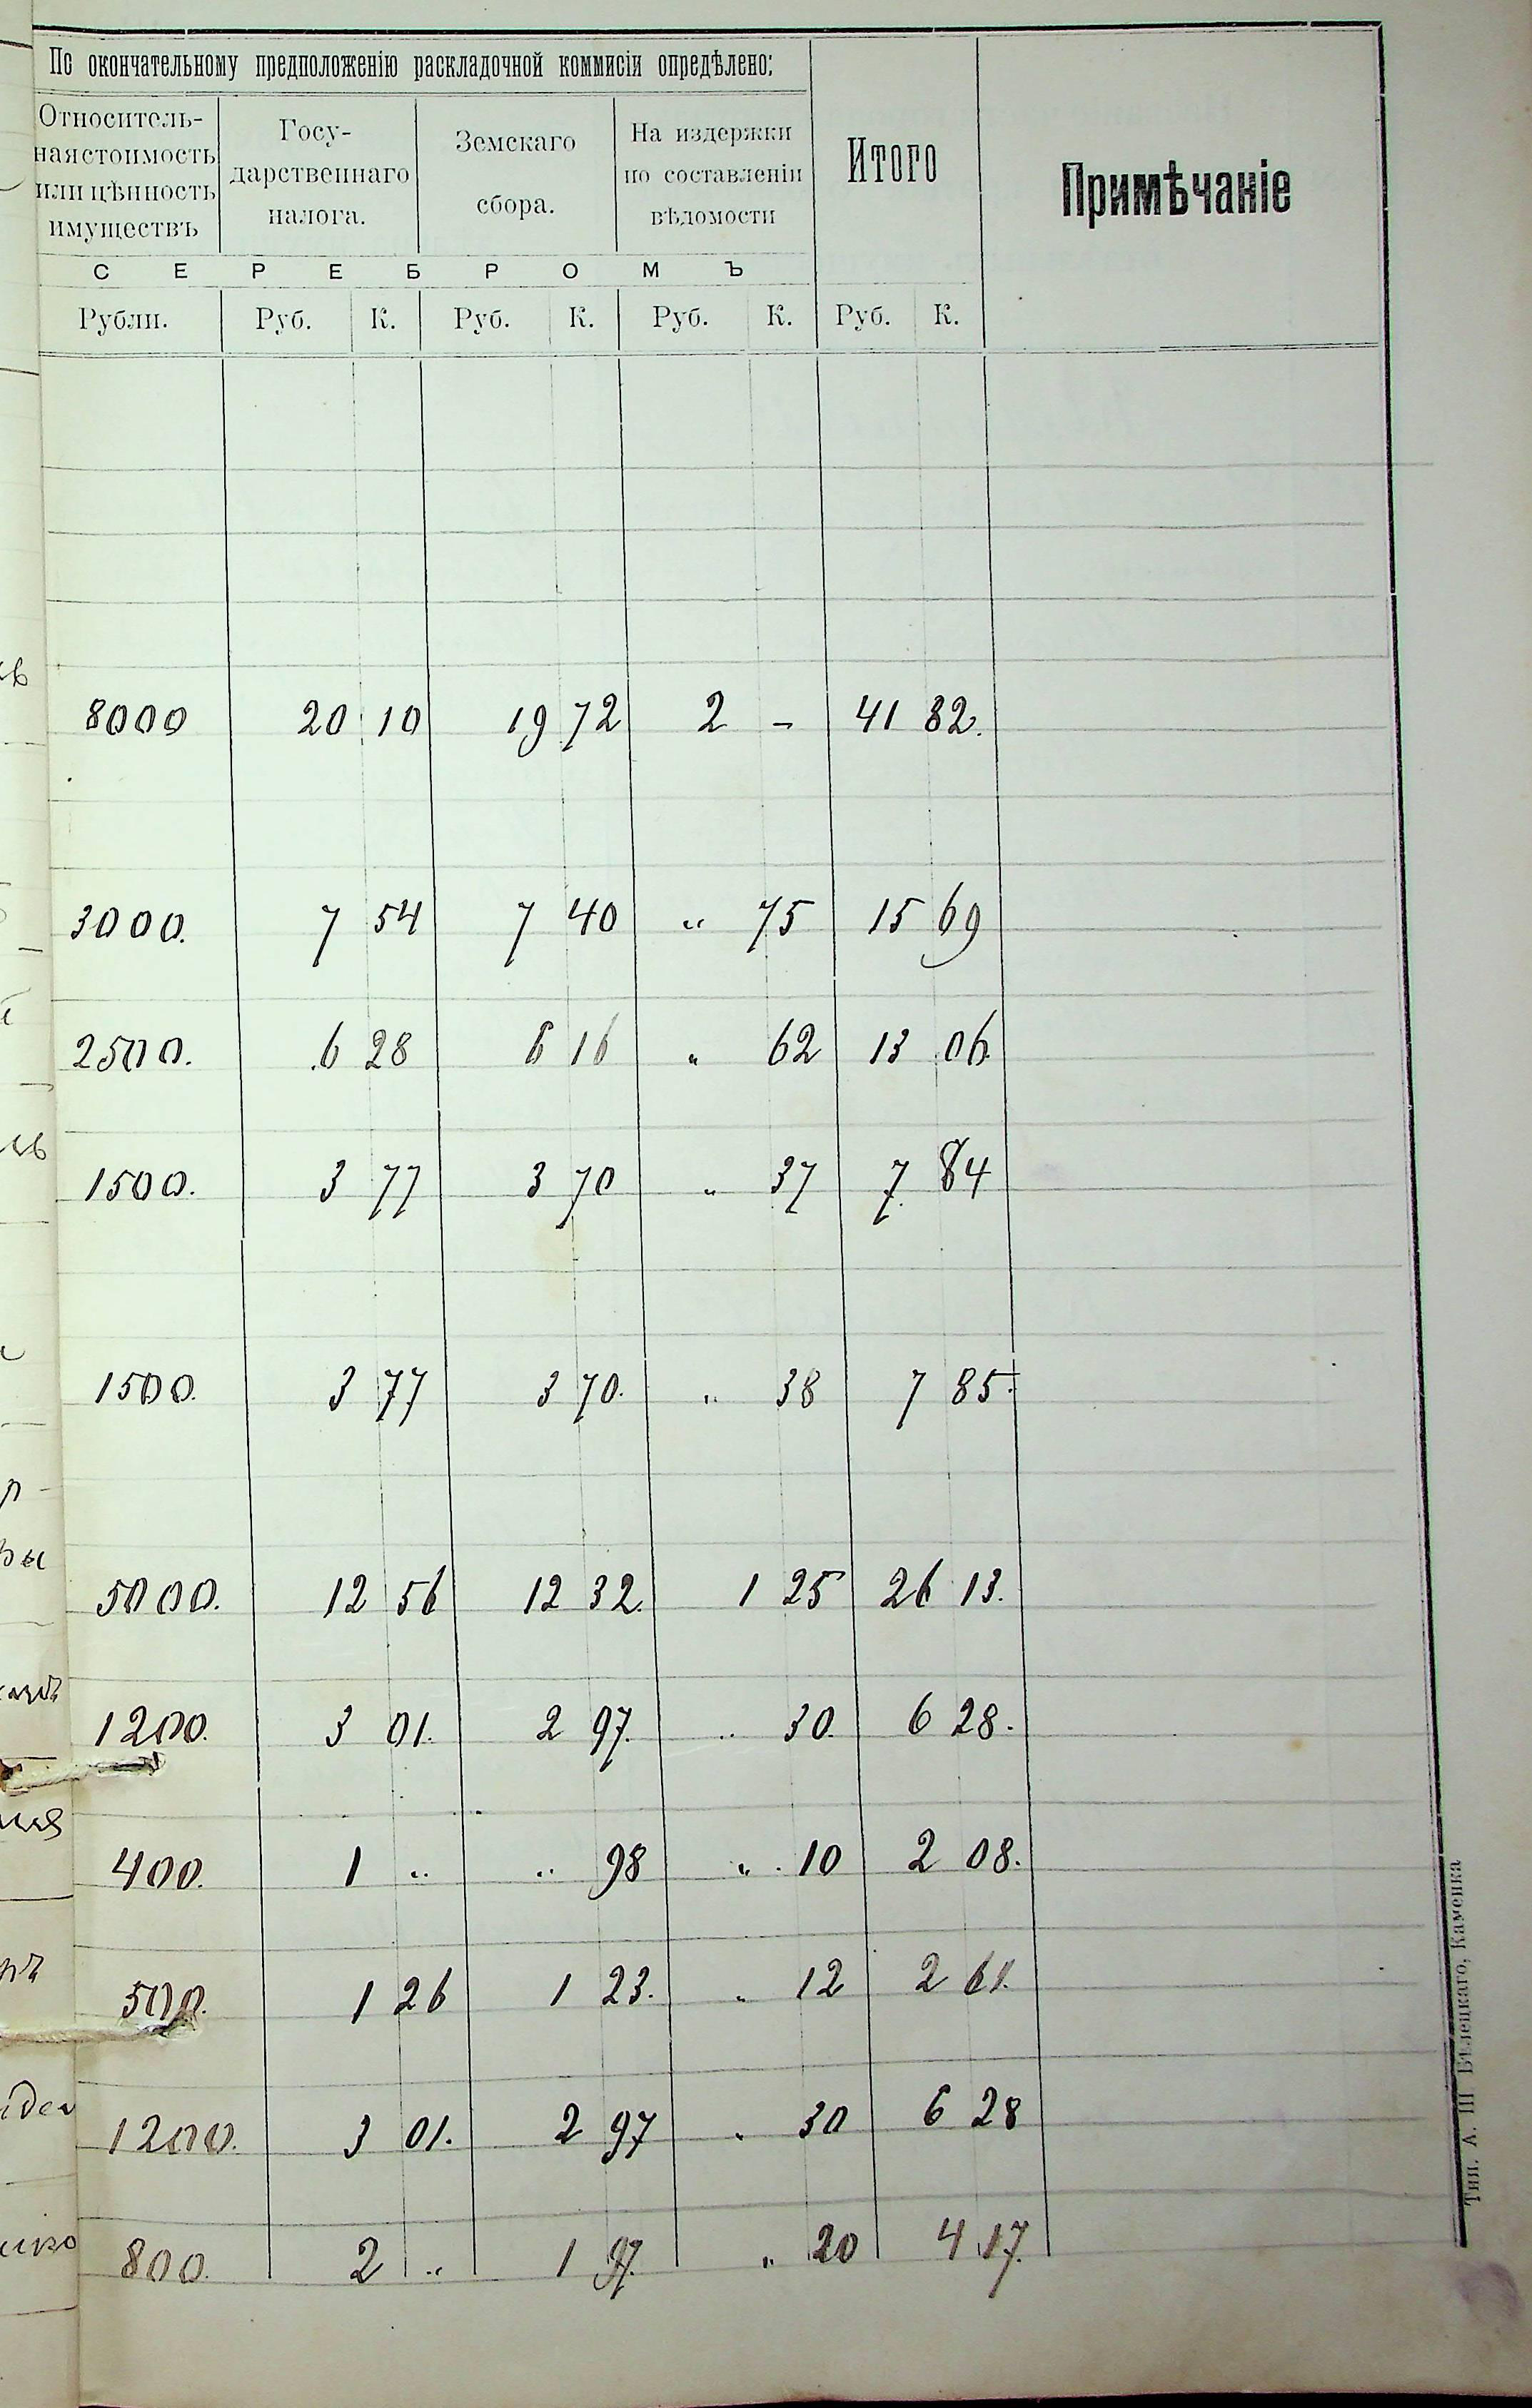 По окончательному предположенію раскладочной коммисіи опредѣлено:
Относитель-
ная стоимость
или цѣнность
имуществъ
Госу-
дарственнаго
налога.
Земскаго
сбора.
На издержки
по составленіи
вѣдомости
Итого
Примѣчаніе
С Е Р Е Б Р О М Ъ
Рубли. Руб. К. Руб. К. Руб. К. Руб. К.
8000 20 10 19 72 2 – 41 82.
3000. 7 54 7 40 " 75 15 69
2500. 6 28 6 16 " 62 13 06
1500. 3 77 3 70 " 37 7 84
1500. 3 77 3 70. " 38 7 85.
5000. 12 56 12 32. 1 25 26 13.
1200. 3 01. 2 97. " 30. 6 28.
400. 1 " " 98 " 10 2 08.
500. 1 26 1 23. " 12 2 61.
1200. 3 01. 2 97 " 30 6 28
800. 2 " 1 97. " 20 4 17.
Тип. А. Ш Бѣлецкаго, Каменка